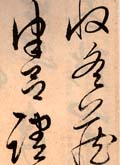 收冬藏
律呂調